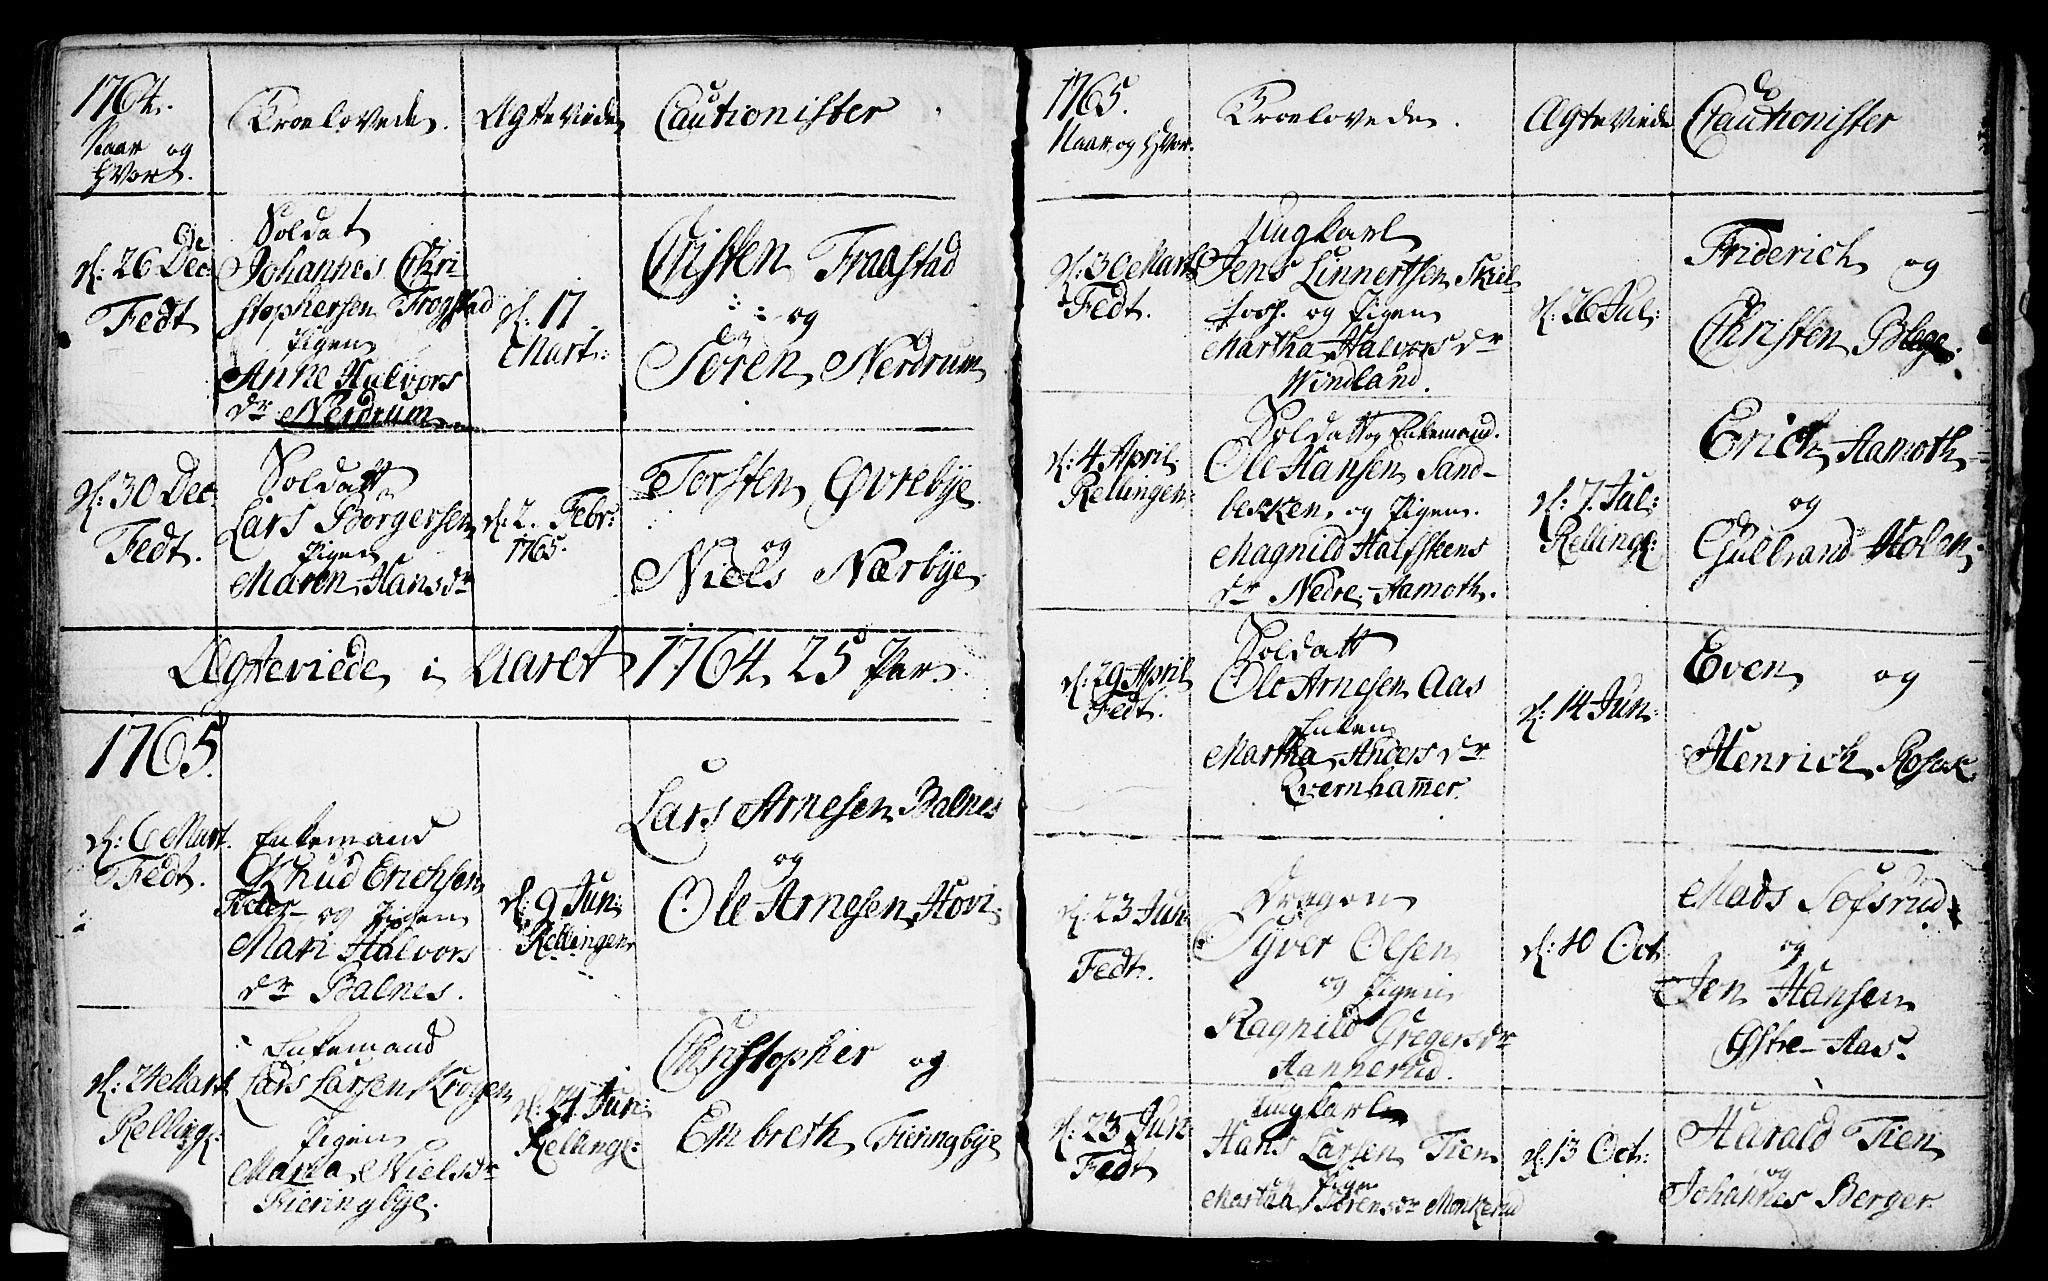 1764.
Naar og
Hvor.
Troelovede.
Ægteviede
Cautionister
d: 26 Dec
Fedt
Soldat
Johannes Chri
stophersen Frogstad
Pigen
Anne Halvors
dr Nerdrum
d: 17
Mart:
Cristen Fraastad
og
Sören Nerdrum
d: 30 Dec
Fedt.
Soldatt
Lars Borgersen
Pigen
Maren Hansdr
d: 2. Febr:
1765.
Torsten Øvrebye
og
Niels Nærbye
Ægteviede i Aaret 1764 25 Par.
1765.
d: 6 Mart.
Fedt.
Enkemand
Knud Erichsen
og Pigen
Mari Halvors
dr Balnes.
d: 9 Jun:
Rellingen
Lars Arnesen Balnes
og
Ole Arnesen Hovi
d: 24 Mart
Relling:
Enkemand
Lars Larsen Krogen
Pigen
Maria Nielsdr
Fieringbye.
d: 24 Jun:
Rellinge:
Christopher og
Embreth Fieringbye
1765.
Naar og Hvor.
Troelovede.
Ægteviede
Cautionister
d: 30 Mart
Fedt.
Ungkarl
Jens Linnertsen Skul
foss. og Pigen
Martha Halvorsdr
Windland.
d: 26 Jul:
Friderich og
Christen
d: 4 April
Rellingen
Soldatt og Enkemand.
Ole Hansen Sand-
bekken og Pigen.
Magnild Halfskens
dr Nedre Aamoth.
d: 7. Jul:
Relling:
Erich Aamoth
og
Gulbrand Holen
d: 29 April
Fedt.
Soldatt
Ole Arnesen Aas
Enken
Martha Andersdr
Kvernhammer.
d: 14 Jun:
Even og
Henrich
d: 23 Jun
Fedt.
Dragon
Syver Olsen
og Pigen
Ragnild Gregersdr
Aannerud.
d: 10 Oct
Mads Sofsrud
og
Jen Hansen
Østre Aas.
d: 23 Jun:
Fedt
Ungkarl
Hans Larsen Tien
Pige
Martha Sörensdr Monkerud
d: 13 Oct:
Harald Tien
og
Johannes Berger